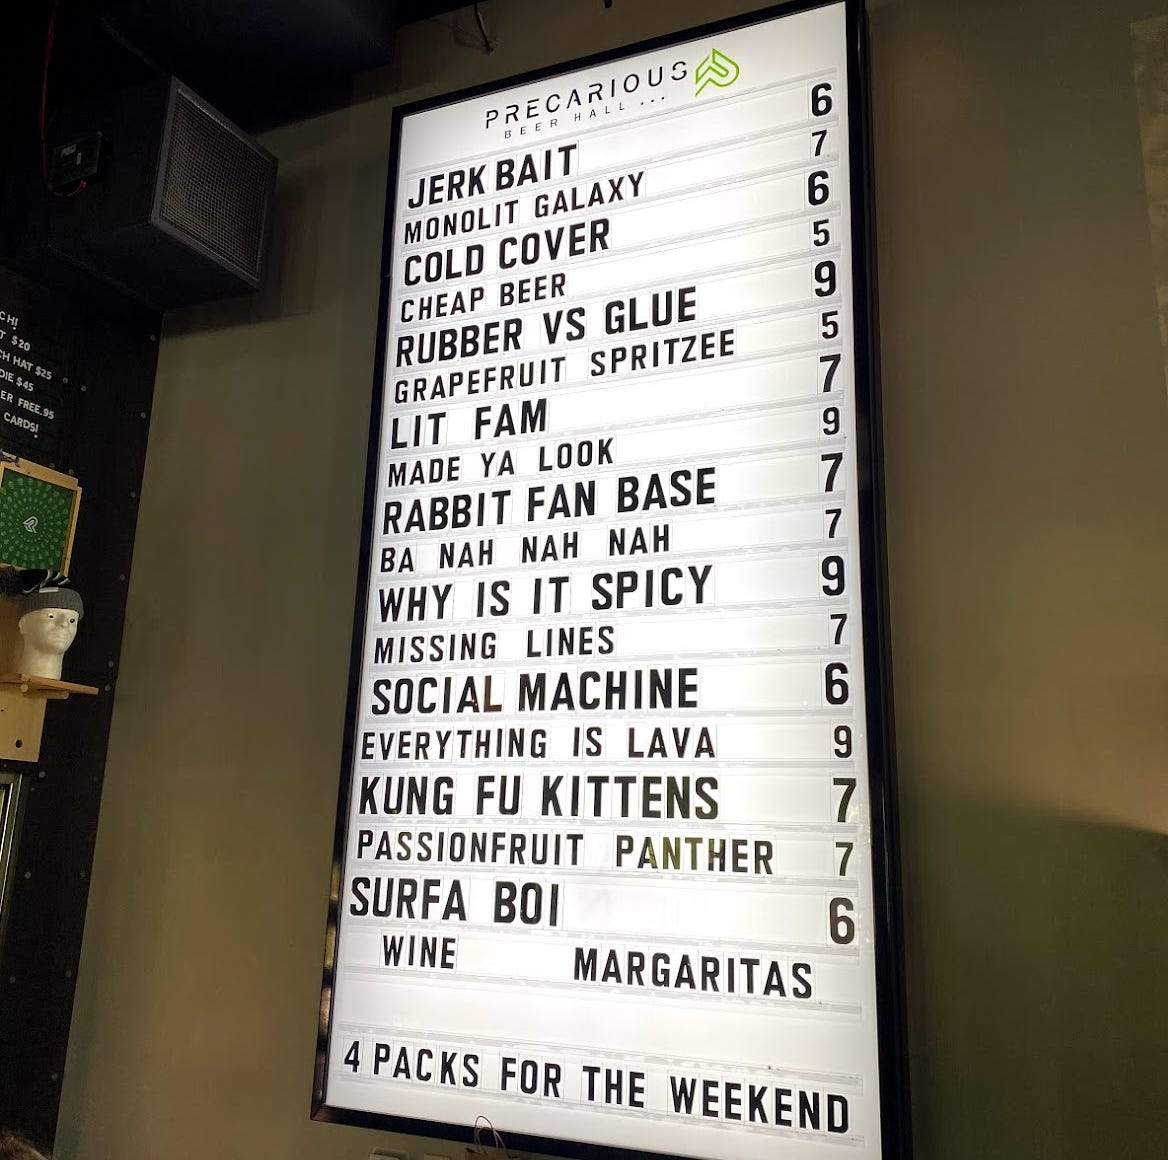 PRECARIOUS
BEER HALL ...
JERK BAIT 6
MONOLIT GALAXY 7
COLD COVER 6
CHEAP BEER 5
RUBBER VS GLUE 9
GRAPEFRUIT SPRITZEE 5
LIT FAM 7
MADE YA LOOK 9
RABBIT FAN BASE 7
BA NAH NAH NAH 7
WHY IS IT SPICY 9
MISSING LINES 7
SOCIAL MACHINE 6
EVERYTHING IS LAVA 9
KUNG FU KITTENS 7
PASSIONFRUIT PANTHER 7
SURFA BOI 6
WINE MARGARITAS
4 PACKS FOR THE WEEKEND
$20
HAT $25
$45
FREE.95
CARDS!